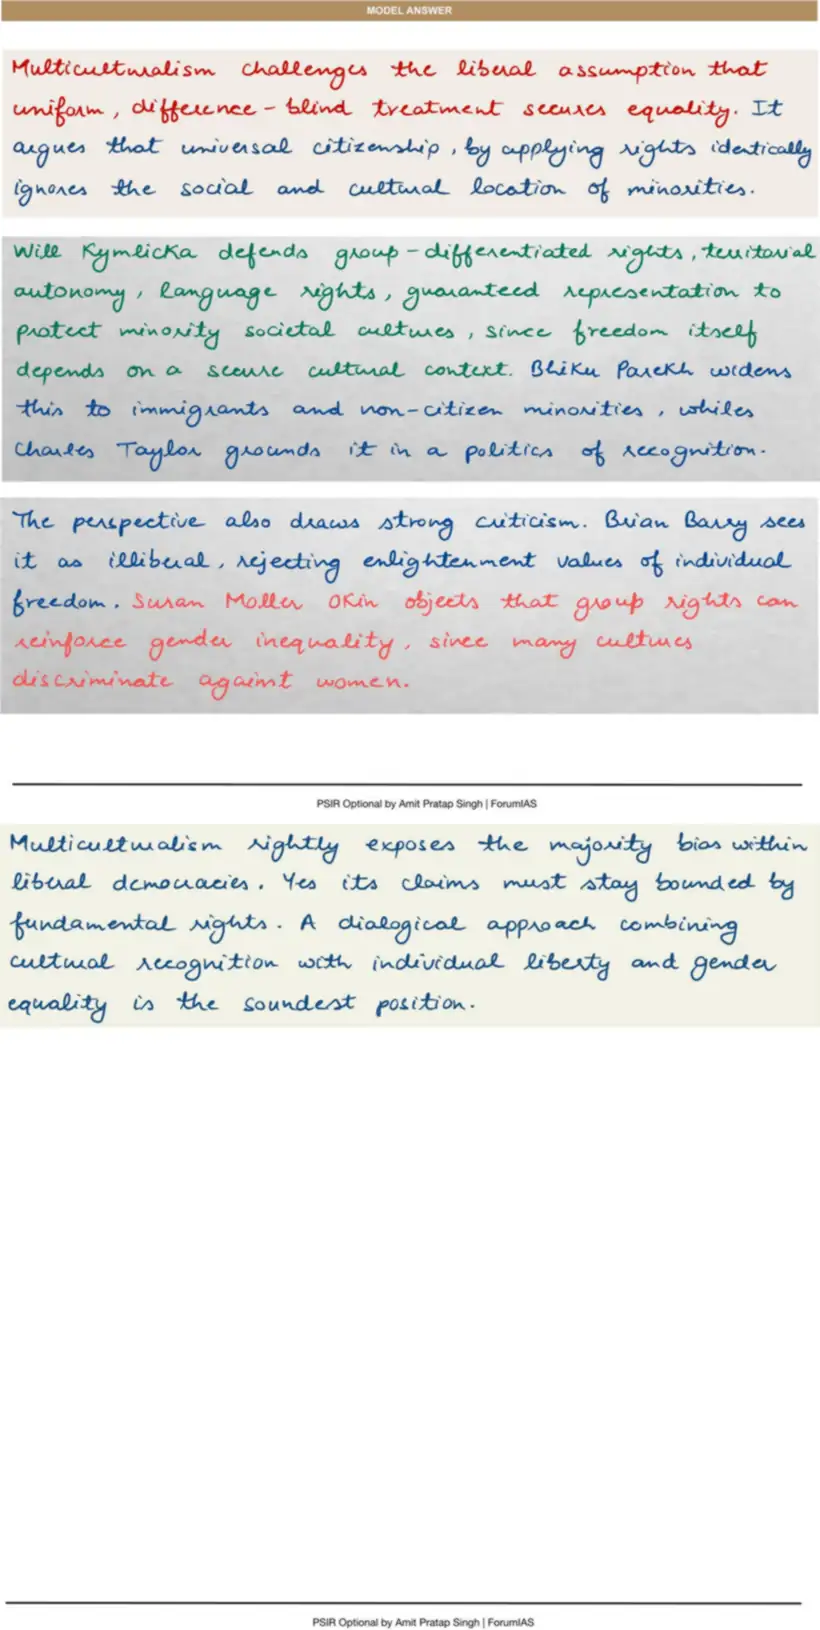 MODEL ANSWER
Multiculturalism challenges the liberal assumption that
uniform, difference - blind treatment secures equality. It
argues that universal citizenship, by applying rights identically
ignores the social and cultural location of minorities.
Will Kymlicka defends group - differentiated rights, territorial
autonomy, language rights, guaranteed representation to
protect minority societal cultures, since freedom itself
depends on a secure cultural context. Bhiku Parekh widens
this to immigrants and non-citizen minorities, whiles
Charles Taylor grounds it in a politics of recognition.
The perspective also draws strong criticism. Brian Barry sees
it as illiberal, rejecting enlightenment values of individual
freedom. Susan Moller Okin objects that group rights can
reinforce gender inequality, since many cultures
discriminate against women.
PSIR Optional by Amit Pratap Singh | ForumIAS
Multiculturalism rightly exposes the majority bias within
liberal democracies. Yes its claims must stay bounded by
fundamental rights. A dialogical approach combining
cultural recognition with individual liberty and gender
equality is the soundest position.
PSIR Optional by Amit Pratap Singh | ForumIAS